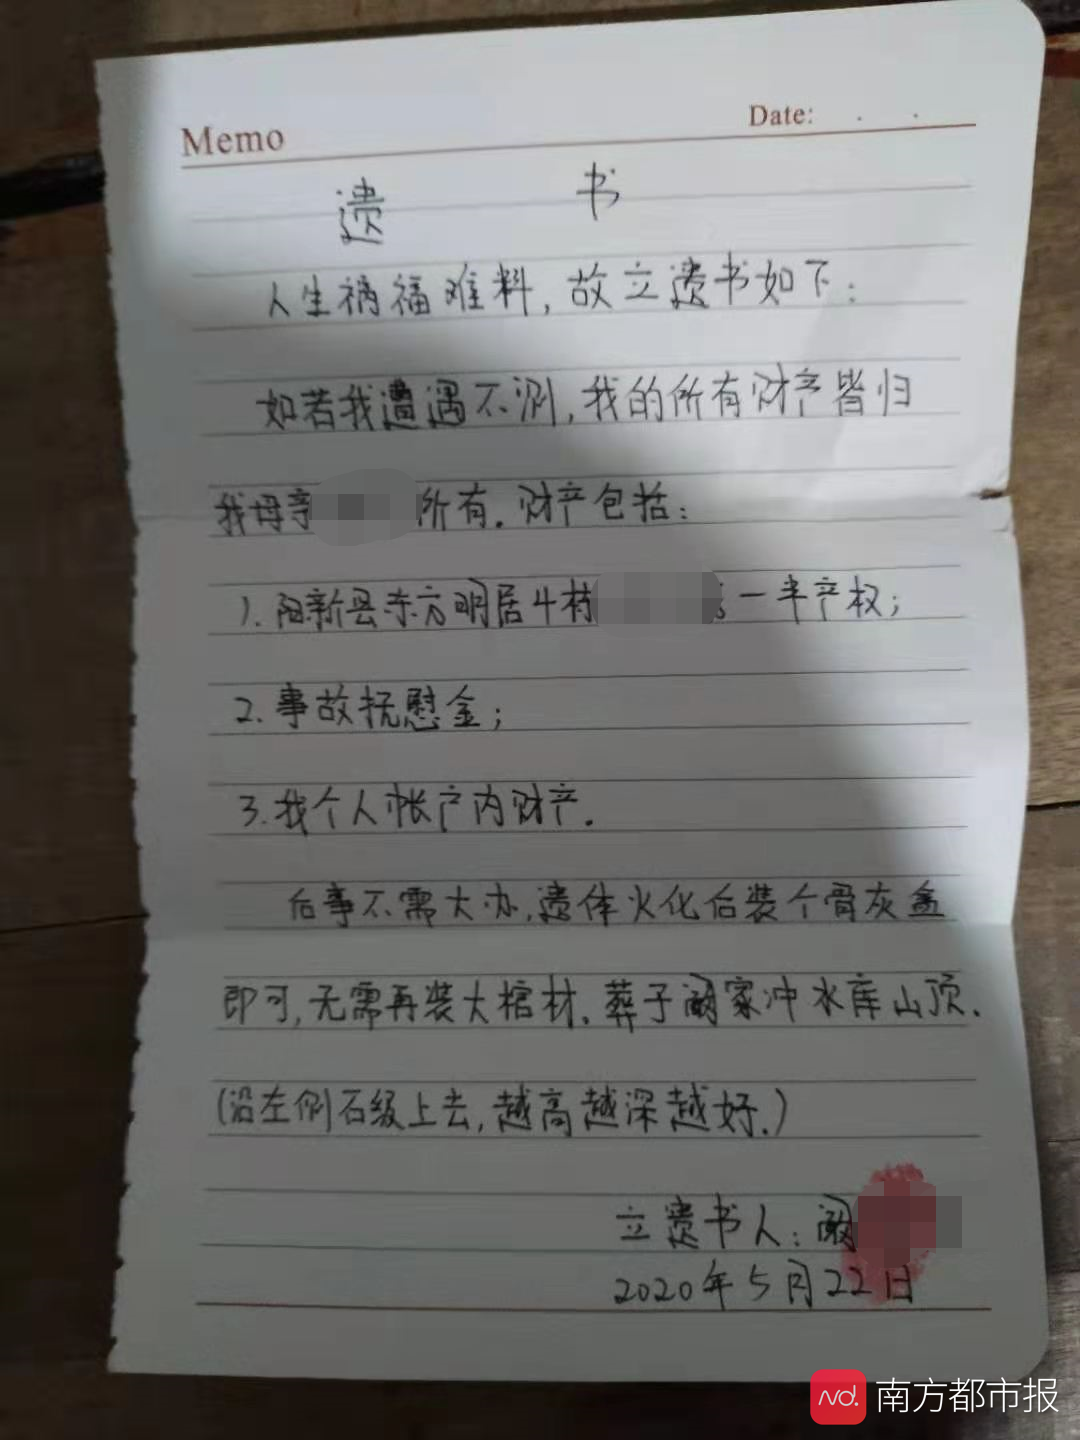 Memo
Date: . .
遗 书
人生祸福难料，故立遗书如下：
如若我遭遇不测，我的所有财产皆归
我母亲 所有。财产包括：
1. 阳新县东方明居4栋 一半产权；
2. 事故抚慰金；
3. 我个人帐户内财产。
后事不需大办，遗体火化后装个骨灰盒
即可，无需再装大棺材。葬于阚家冲水库山顶。
（沿左侧石级上去，越高越深越好。）
立遗书人：阚
2020年5月22日
nd. 南方都市报